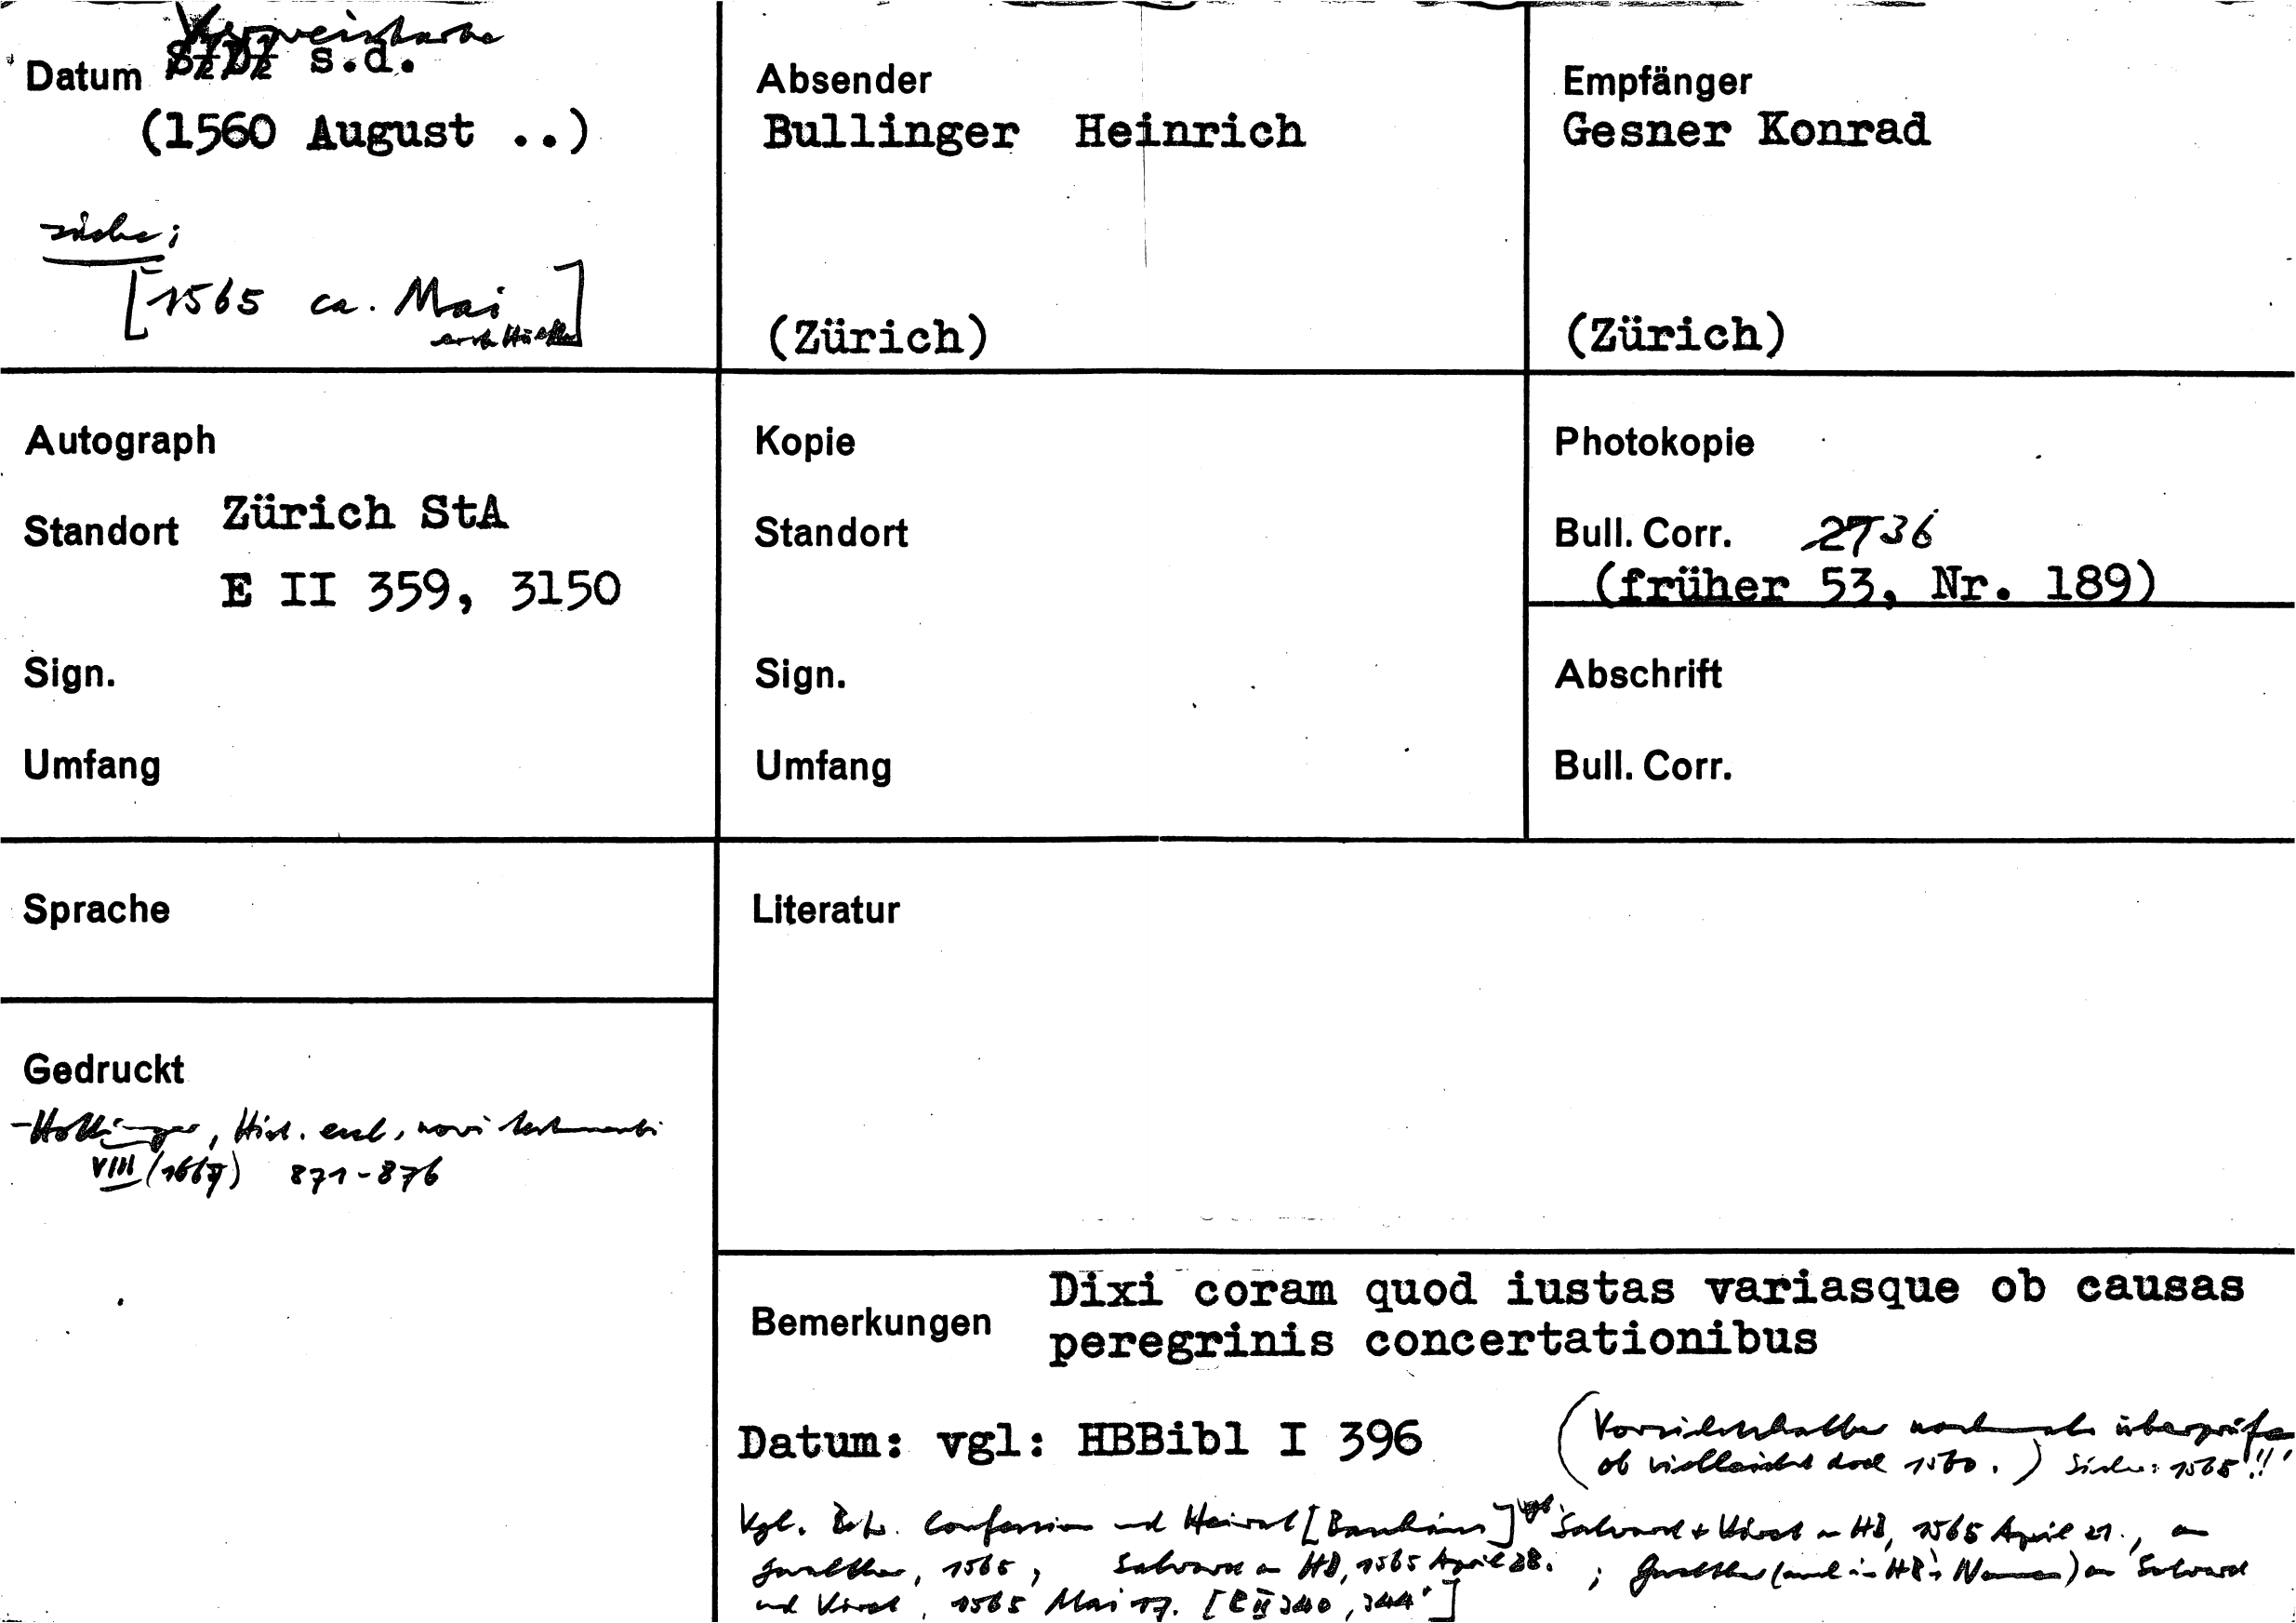 Verweiskarte
Datum s.d.
(1560 August ..)
siehe:
[1565 ca. Mai]
Absender
Bullinger Heinrich
(Zürich)
Empfänger
Gesner Konrad
(Zürich)
Autograph
Standort Zürich StA
E II 359, 3150
Sign.
Umfang
Kopie
Standort
Sign.
Umfang
Photokopie
Bull. Corr. 2736
(früher 53, Nr. 189)
Abschrift
Bull. Corr.
Sprache
Literatur
Gedruckt
-Hottinger, Hist. eccl. novi testamenti
VIII (1667) 871-876
Bemerkungen Dixi coram quod iustas variasque ob causas
peregrinis concertationibus
Datum: vgl: HBBibl I 396
(Vorsichtshalber nochmals überprüfen
ob vielleicht doch 1560.) Sicher: 1565!!!
Vgl. Betr. Confession und Heirat [Bauhins] vgl. Salvard + Virel an HB, 1565 April 21., an
Gwalther, 1565, Salvard an HB, 1565 April 28. ; Gwalther (auch in HB's Namen) an Salvard
und Virel, 1565 Mai 17. [E II 340, 344']